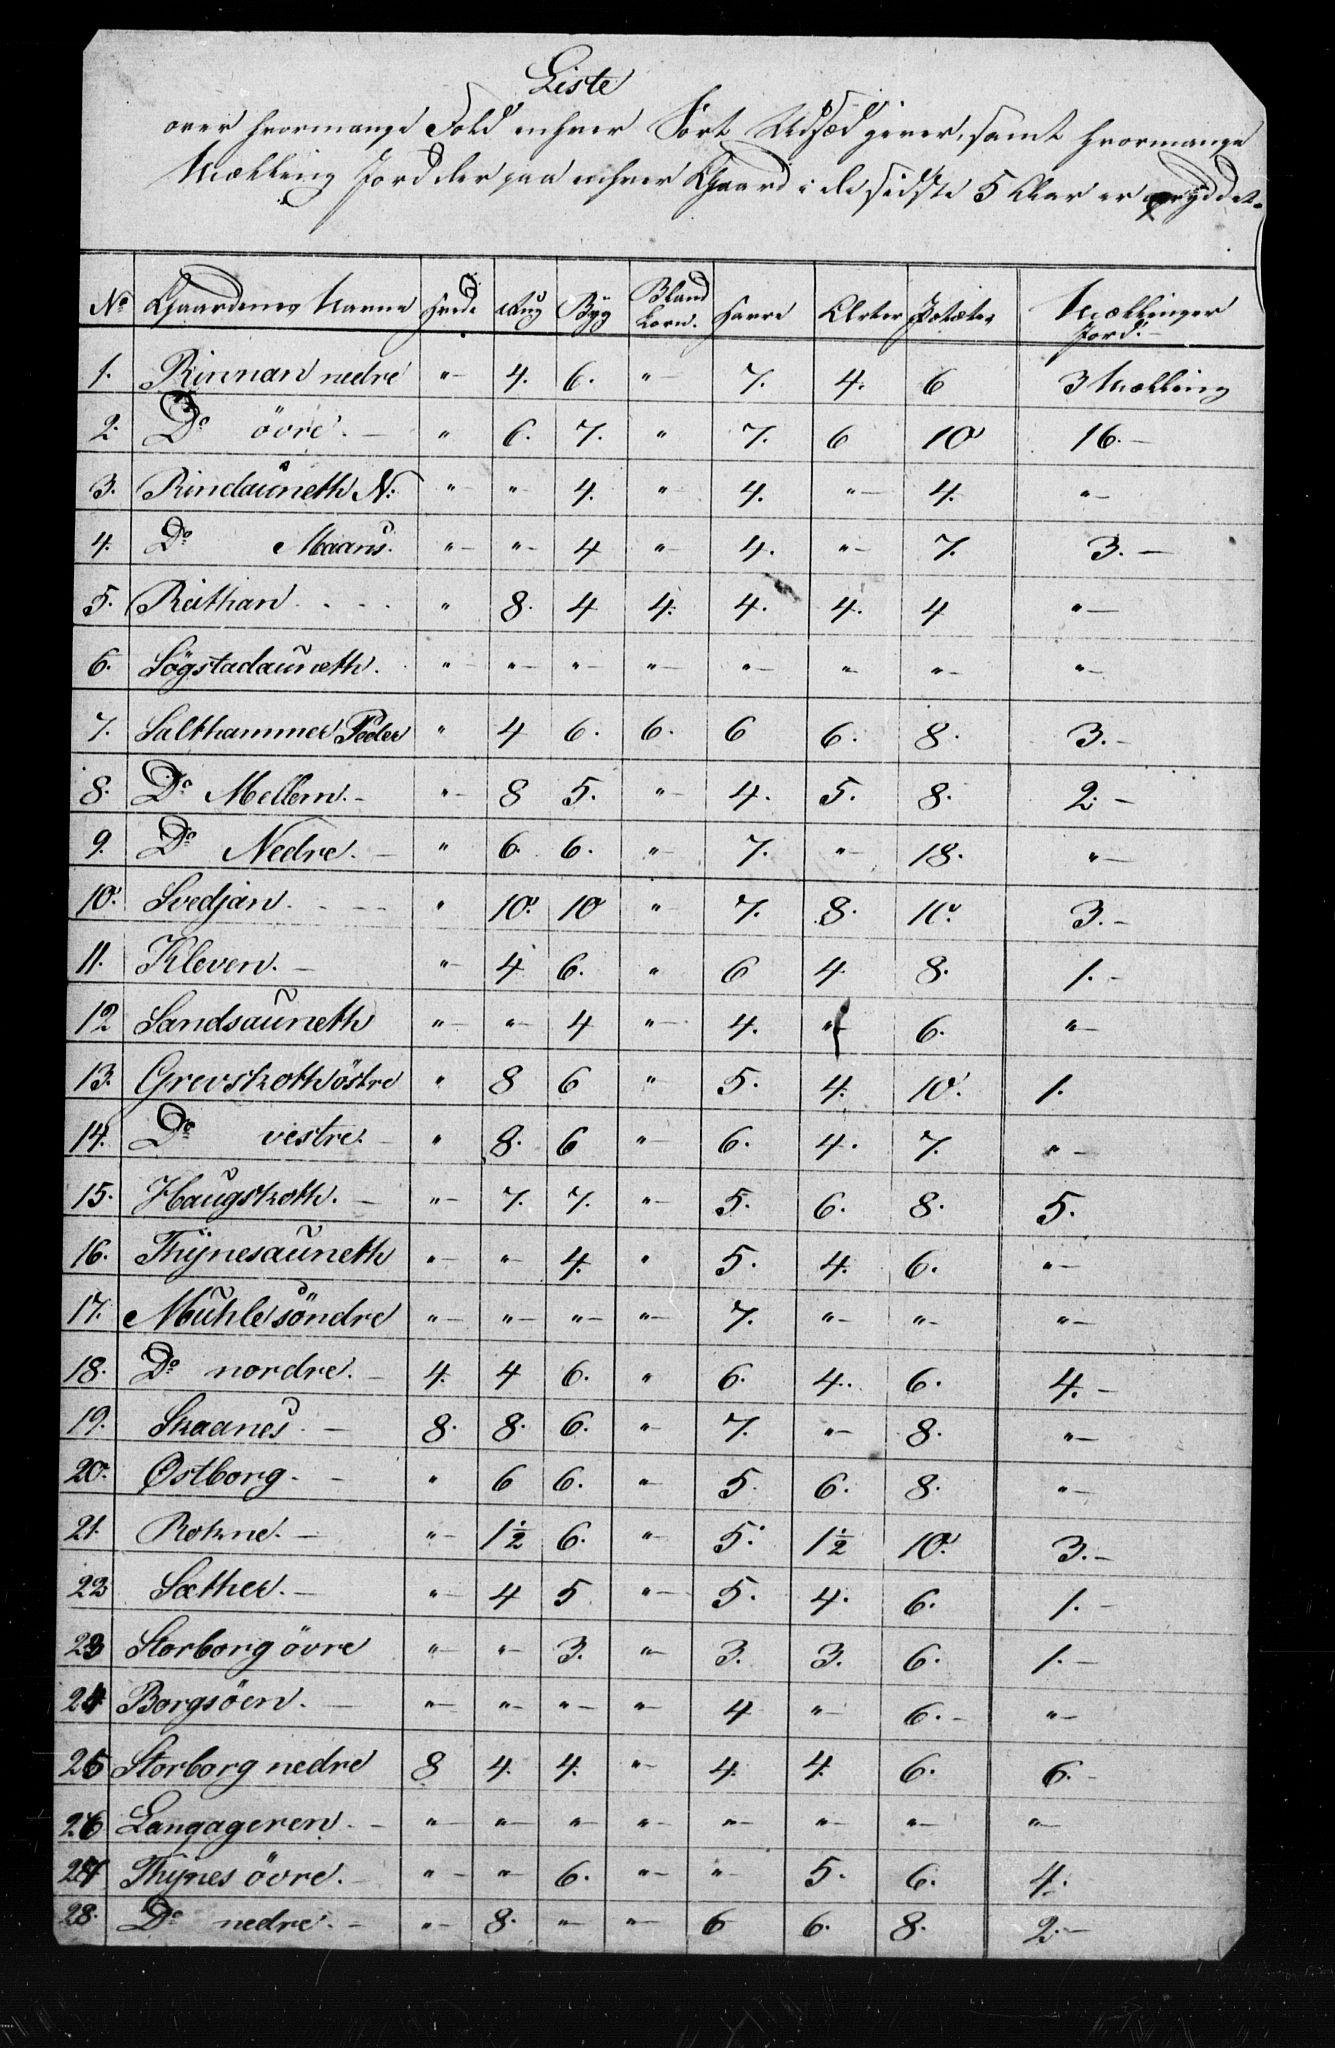 Liste
over hvormange Fold enhver Sort Udsæd giver, samt hvormange
Mælling Jord der paa enhver Gaard i de sidste 5 Aar er opryddet.
No Gaardenes Navne Hvede Rug Byg Bland Korn. Havre Erter Poteter Mællinger Jord.
1. Rinnan nedre " 4. 6. " 7. 4. 6 3 Mælling
2. Do övre. " 6. 7. " 7. 6 10 16.
3. Rindauneth N: " " 4. " 4. " 4. "
4. Do Maans. " " 4 " 4. " 7. 3.
5. Reithan " 8. 4 4. 4. 4. 4 "
6. Søgstadauneth. " " " " " " " "
7. Salthammer Peder " 4 6. 6. 6 6. 8. 3.
8. Do Mellem. " 8 5. " 4. 5. 8. 2.
9. Do Nedre. " 6. 6. " 7. " 18. "
10. Svedjan. " 10. 10 " 7. 8. 10. 3.
11. Kleven. " 4 6. " 6 4. 8. 1.
12 Sandsauneth " " 4 " 4. " 6. "
13. Grevskott östre " 8 6 " 5. 4. 10. 1.
14. Do vestre. " 8. 6 " 6. 4. 7. "
15. Haugskott. " 7. 7. " 5. 6. 8. 5.
16. Thynesauneth " " 4. " 5. 4. 6. "
17. Muhle söndre " " " " 7. " " "
18. Do nordre. 4. 4 6. " 6. 4. 6. 4.
19. Skaanes. 8. 8. 6. " 7. " 8. "
20. Østborg. " 6 6. " 5. 6. 8. "
21. Rokne. " 1½ 6. " 5. 1½ 10. 3.
22 Sæther. " 4 5 " 5. 4. 6. 1.
23 Storborg övre " " 3. " 3. 3. 6. 1.
24 Borgsöen. " " " " 4 " 6. "
25 Storborg nedre 8 4. 4. " 4. 4. 6. 6.
26 Langageren. " " " " " " " "
27 Thynes övre. " " 6. " " 5. 6. 4.
28. Do nedre. " 8. " " 6 6. 8. 2.